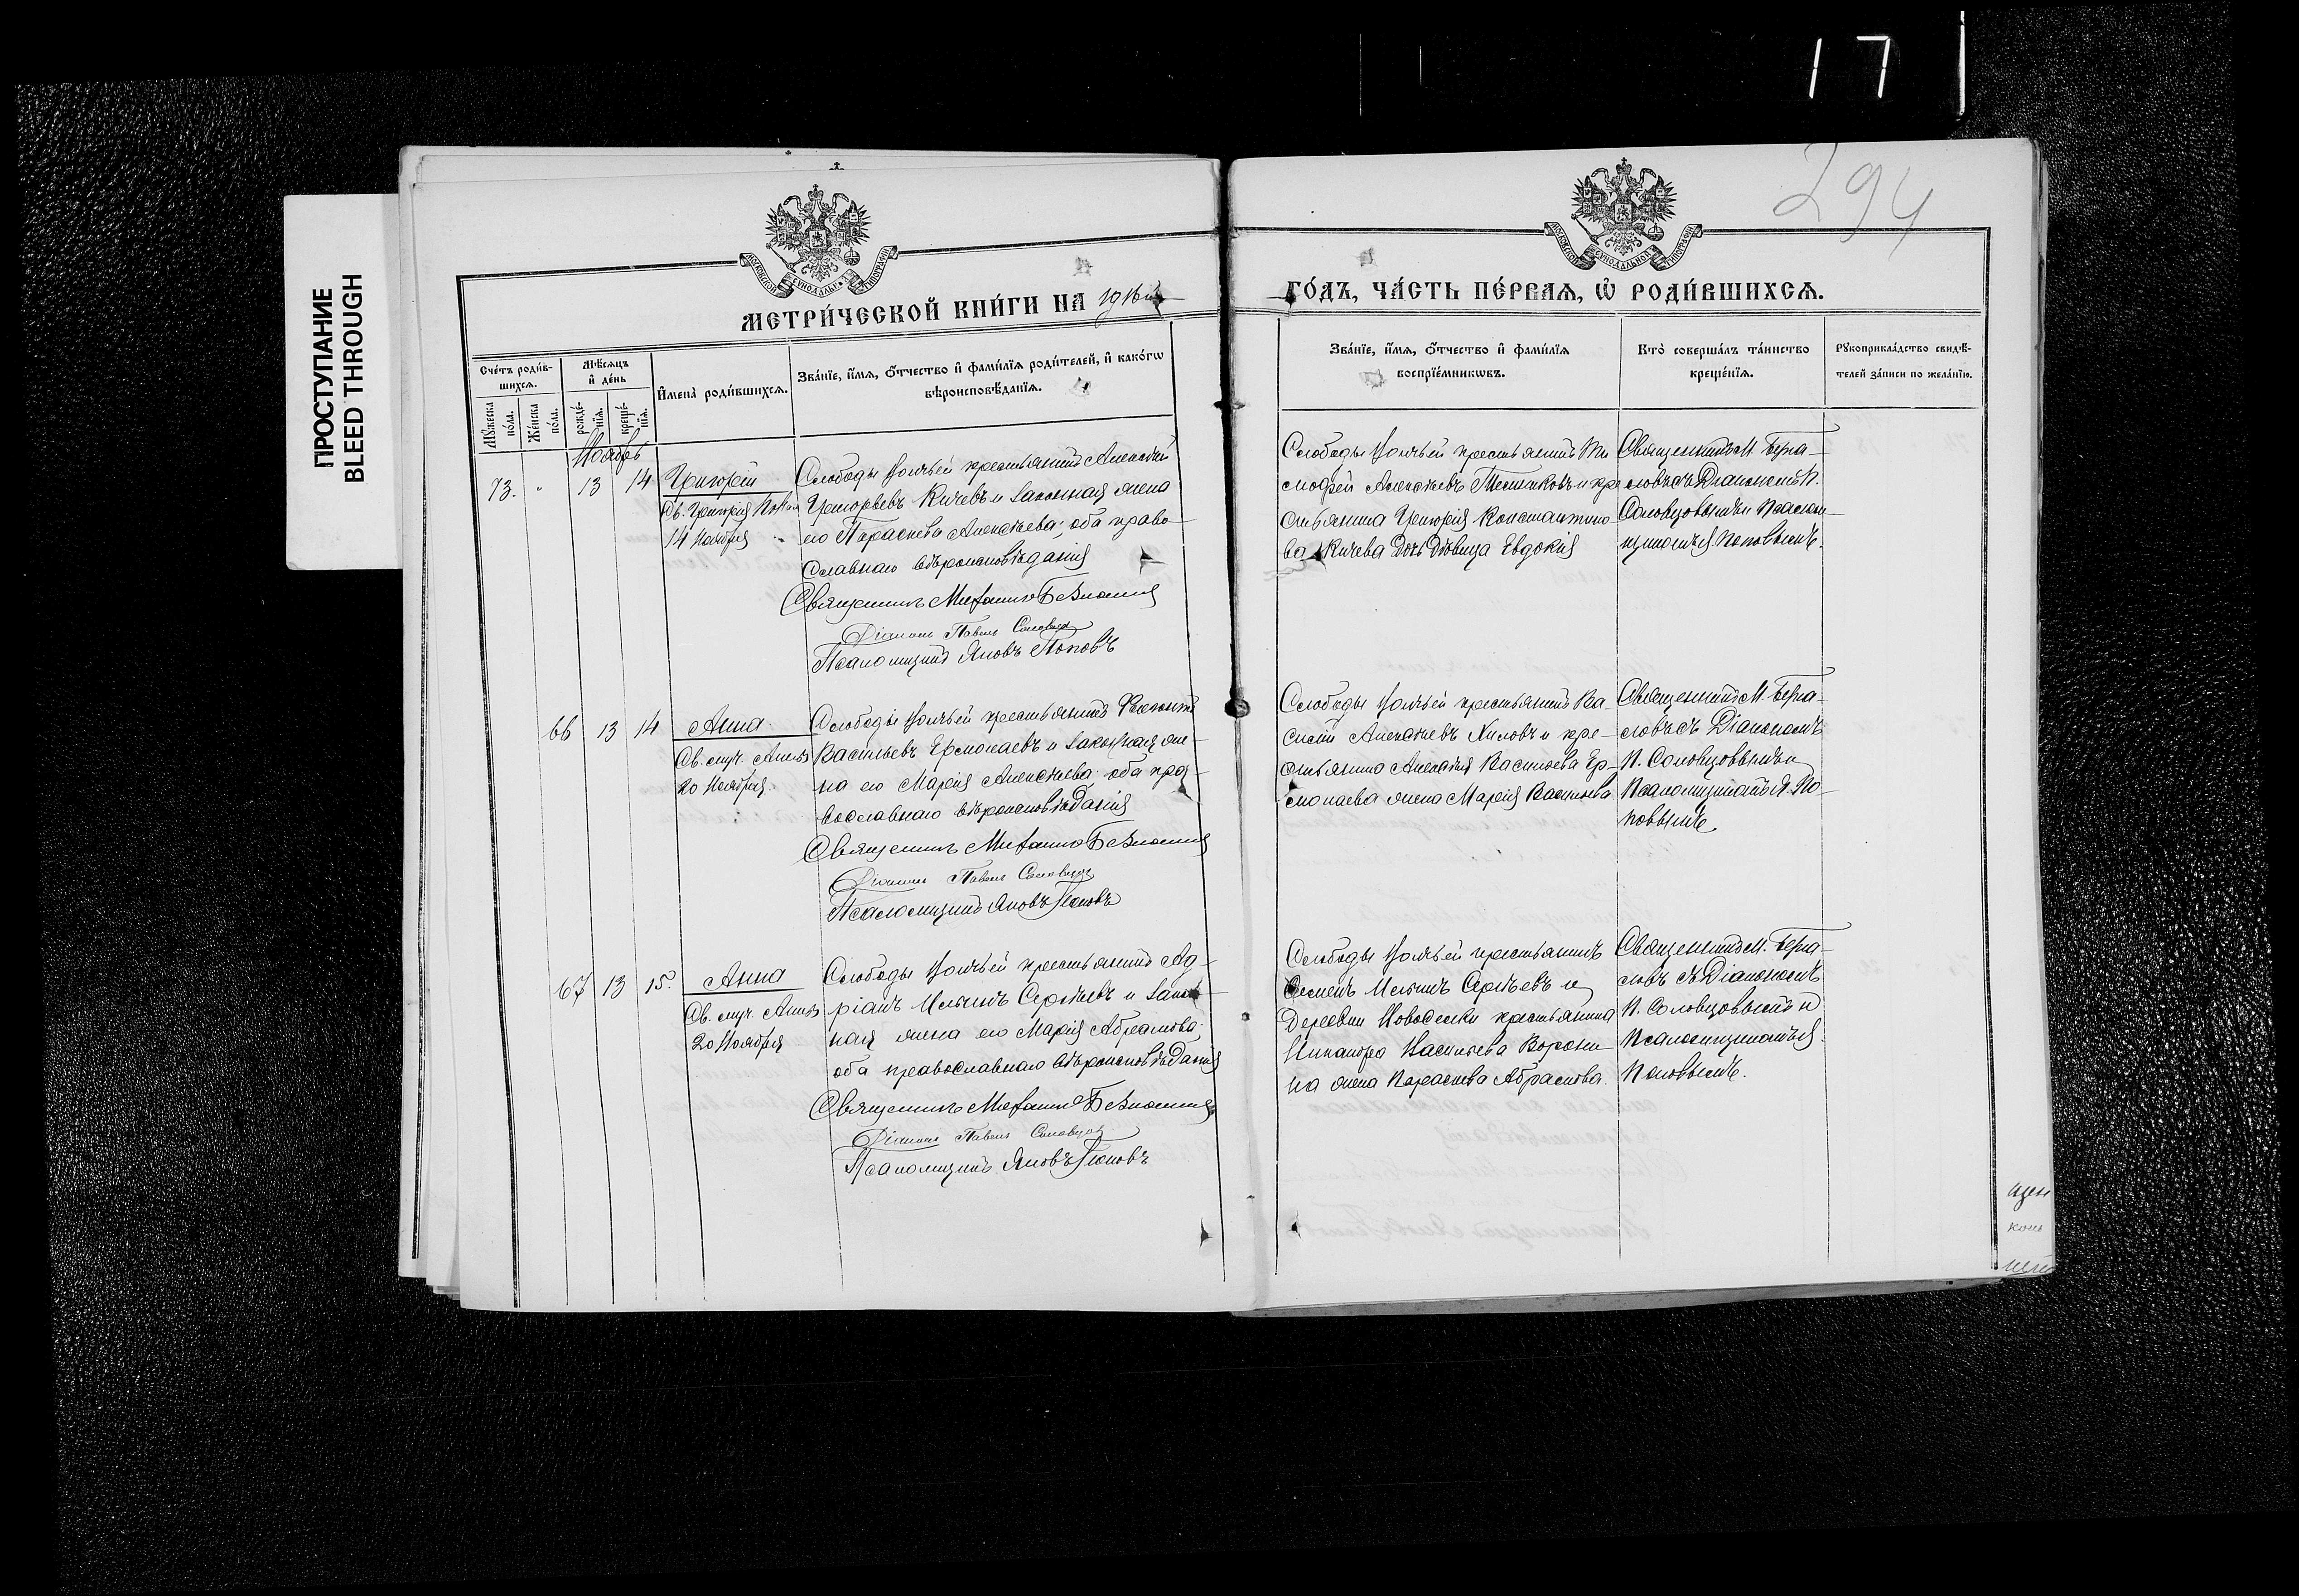 17
ПРОСТУПАНИЕ
BLEED THROUGH
294
МОСКОВСКОЙ СѴНОДАЛЬНОЙ ТИПОГРАФІИ
МОСКОВСКОЙ СѴНОДАЛЬНОЙ ТИПОГРАФІИ
МЕТРИ́ЧЕСКОЙ КНИ́ГИ НА 1916й
ГО́ДЪ, ЧА́СТЬ ПЕ́РВАЯ, Ѡ҆ РОДИ́ВШИХСЯ.
Сче́тъ роди́в-
шихся.
Мѣ́сяцъ
и҆ де́нь
Му́жеска по́ла.
Же́нска по́ла.
рожде́-
нїя.
креще́-
нїя.
И҆мена̀ роди́вшихся.
Зва́нїе, и҆́мя, ѻ҆́тчество и҆ фами́лїя роди́телей, и҆ како́гѡ
вѣроисповѣ́данїя.
Зва́нїе, и҆́мя, ѻ҆́тчество и҆ фами́лїя
воспрїе́мникѡвъ.
Кто̀ соверша́лъ та́инство
креще́нїя.
Рукоприкла́дство свидѣ́-
телей за́писи по жела́нїю.
Ноябрь
73. " 13 14 Григорій
Св. Григорія
14 Ноября
Слободы крестьянинъ Алексѣй
Григорьевъ Кичевъ и законная жена
его Параскева Алексѣева; оба право-
славнаго вѣроисповѣданія
Священникъ
Діаконъ Павелъ Соловцов
Псаломщикъ Яковъ Поповъ
Слободы крестьянинъ Ти
мофей Алексѣевъ и кре
стьянина Григорія Константино
ва Кичева дочь дѣвица Евдокія
Священникъ М.
съ Діакономъ П.
Соловцовымъ и Псалом
щикомъ Я. Поповымъ.
66 13 14 Анна
Св. муч. Анны
20 Ноября.
Слободы крестьянинъ
Васильевъ Ермолаевъ и законная же-
на его Марія Алексѣева; оба пра-
вославнаго вѣроисповѣданія
Священникъ
Діаконъ Павелъ Соловцов
Псаломщикъ Яковъ Поповъ
Слободы крестьянинъ Ва-
силій Алексѣевъ и кре-
стьянина Алексѣя Васильева Ер-
молаева жена Марія Васильева
Священникъ М.
съ Діакономъ
П. Соловцовымъ и
Псаломщикомъ Я. По-
повымъ.
67 13 15. Анна
Св. муч. Анны
20 Ноября
Слободы крестьянинъ Ад-
ріанъ Ильинъ Сергѣевъ и закон-
ная жена его Марія Абрамова;
оба православнаго вѣроисповѣданія
Священникъ
Діаконъ Павелъ Соловцов
Псаломщикъ Яковъ Поповъ
Слободы крестьянинъ
Семенъ Ильинъ Сергѣевъ и
деревни Новоселки крестьянина
Никанора Васильева Ворони
на жена Параскева Абрамова.
Священникъ М.
съ Діакономъ
П. Соловцовымъ и
Псаломщикомъ Я.
Поповымъ.